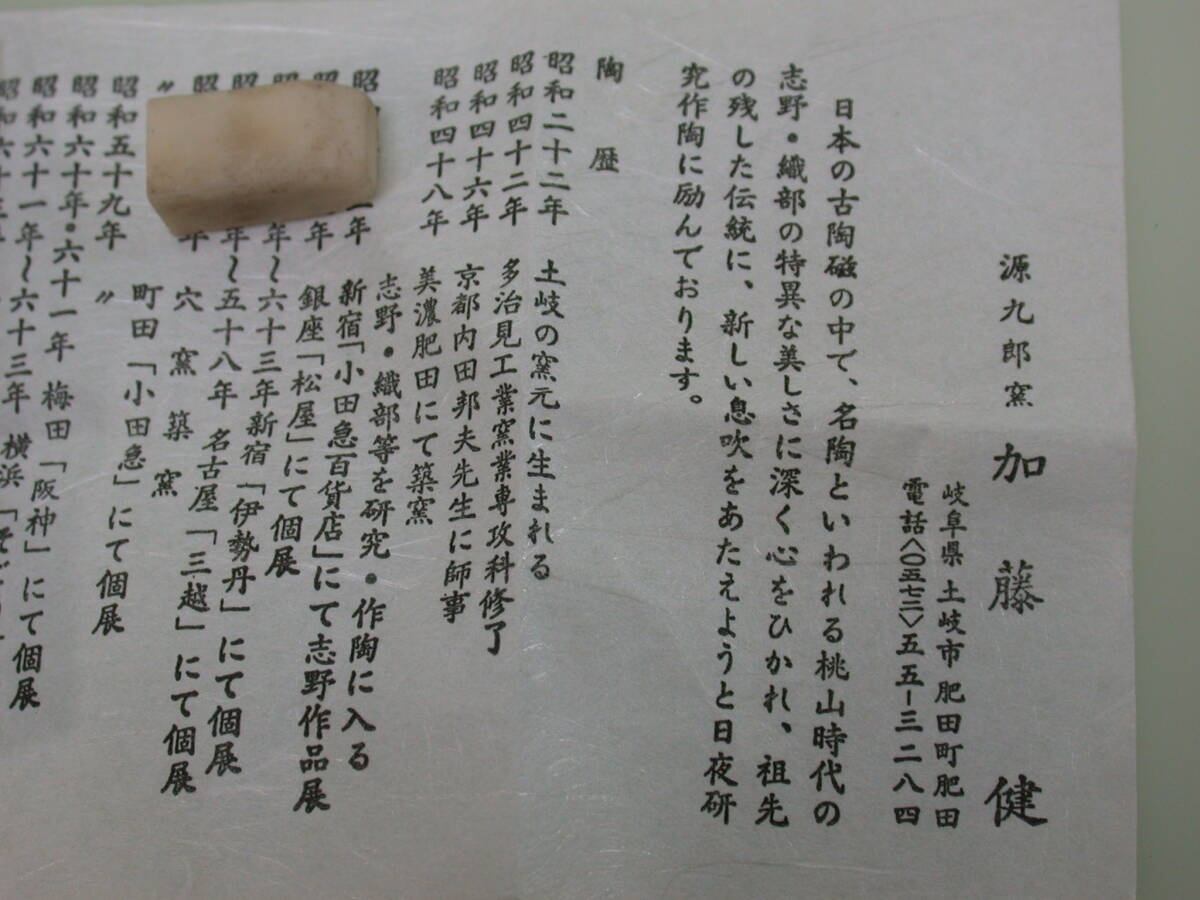 源九郎窯 加藤健
岐阜県土岐市肥田町肥田
電話〈〇五七二〉五五ー三二八四
日本の古陶磁の中で、名陶といわれる桃山時代の
志野・織部の特異な美しさに深く心をひかれ、祖先
の残した伝統に、新しい息吹をあたえようと日夜研
究作陶に励んでおります。
陶歴
昭和二十二年 土岐の窯元に生まれる
昭和四十二年 多治見工業窯業専攻科修了
昭和四十六年 京都内田邦夫先生に師事
昭和四十八年 美濃肥田にて築窯
志野・織部等を研究・作陶に入る
昭 年 新宿「小田急百貨店」にて志野作品展
昭 年 銀座「松屋」にて個展
昭 年〜六十三年新宿「伊勢丹」にて個展
昭 年〜五十八年 名古屋「三越」にて個展
昭 年 穴窯築窯
〃 町田「小田急」にて個展
昭和五十九年 〃
昭和六十年・六十一年 梅田「阪神」にて個展
昭和六十一年〜六十三年 横浜「そ
昭和六十三年